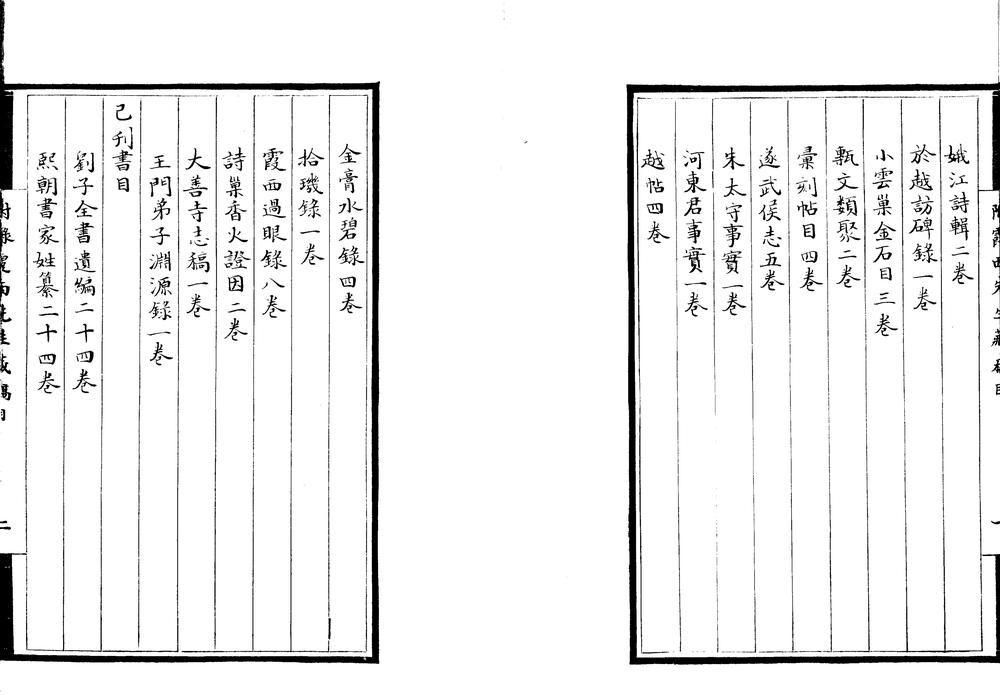 娥江詩輯二卷
於越訪碑錄一卷
小雲巢金石目三卷
甎文類聚二卷
彙刻帖目四卷
遂武侯志五卷
朱太守事實一卷
河東君事實一卷
越帖四卷
金膏水碧錄四卷
拾璣錄一卷
霞西過眼錄八卷
詩巢香火證因二卷
大善寺志稿一卷
王門弟子淵源錄一卷
已刊書目
劉子全書遺編二十四卷
熙朝書家姓纂二十四卷
二